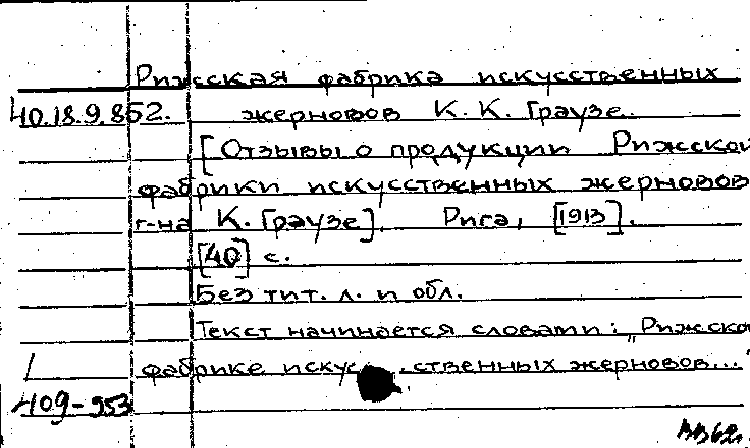 Рижсская фабрика искусственных
40.18.9.852. жерновов К. К. Граузе.
[Отзывы о продукции Рижской
фабрики искусственных жерновов
г-на К. Граузе]. Рига, [1913].
[40] с.
Без тит. л. и обл.
Текст начинается словами: „Рижско
фабрике искусственных жерновов..."
1
409-953